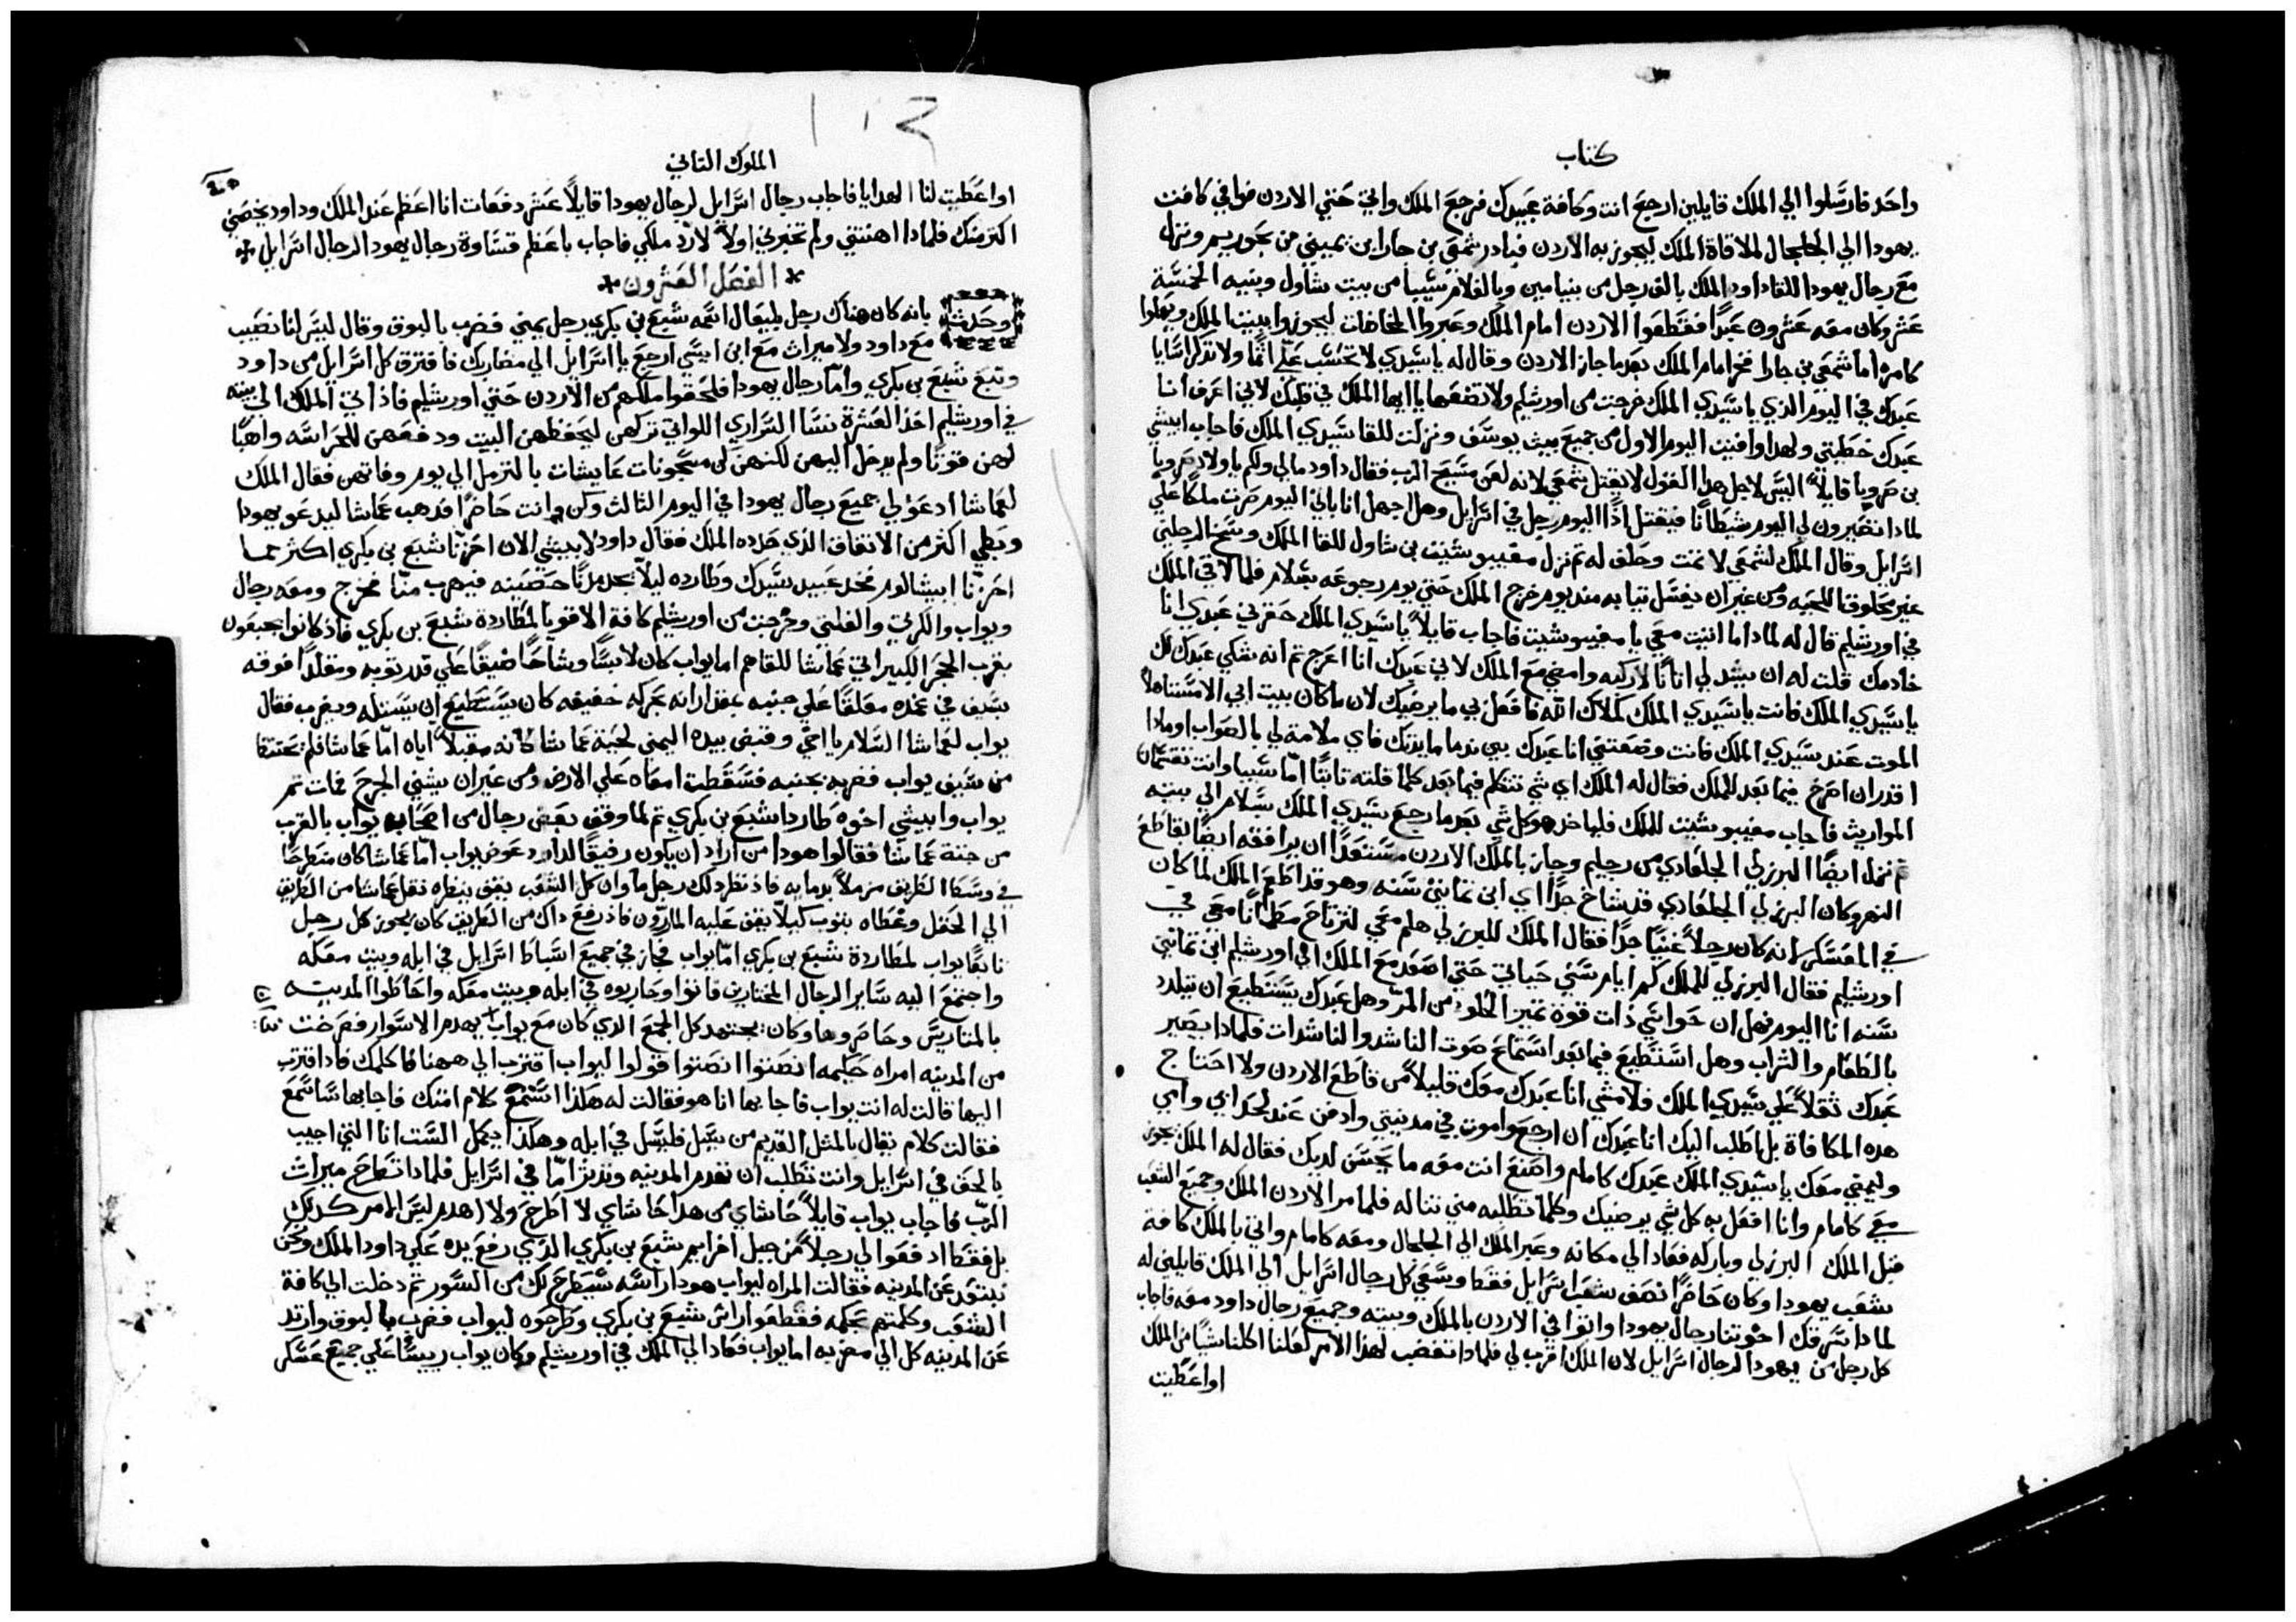 كتاب
واحد فارسلوا الي الملك قايلين ارجع انت وكافة عبيدك فرجع الملك واتي حتي الاردن فوافي كافت
يهودا الي الجلجال لملاقاة الملك ليجوز به الاردن فبادر شمعي بن جارا ابن يميني من بحوريم ونزل
مع رجال يهودا للقا داود الملك بالف رجل من بنيامين وبالغلام سيبا من بيت شاول وبنيه الخمسة
عشر وكان معه عشرون عبدًا فقطعوا الاردن امام الملك وعبروا المخاضات ليجوزوا ببيت الملك ويعملوا
كامره اما شمعي بن جارا فخر امام الملك بعد ما جاز الاردن وقال له يا سيدي لا تحسب علي اثمًا ولا تذكر اسايا
عبدك في اليوم الذي يا سيدي الملك خرجت من اورشليم ولا تضعها يا ايها الملك في قلبك لاني اعرف انا
عبدك خطيتي ولهدا وافيت اليوم الاول من جميع بيت يوسف ونزلت للقا سيدي الملك فاجاب ابيشي
بن صرويا قايلاً اليس لاجل هدا القول لا يقتل شمعي لانه لعن مسيح الرب فقال داود مالي ولكم يا ولاد صرويا
لمادا تصيرون لي اليوم شيطانًا فيقتل اذًا اليوم رجل في اسرايل وهل اجهل انا باني اليوم صرت ملكًا علي
اسرايل وقال الملك لشمعي لا تمت وحلف له ثم نزل مفيبوشيت بن شاول للقا الملك وسخ الرجلين
غير محلوق اللحيه ومن غير ان يغسل تيابه مند يوم خرج الملك حتي يوم رجوعه بسلام فلما لاقي الملك
في اورشليم قال له لمادا ما اتيت معي يا مفيبوشيت فاجاب قايلاً يا سيدي الملك حقرني عبدي انا
خادمك قلت له ان يشد لي اتانًا لاركبه وامضي مع الملك لاني عبدك انا اعرج ثم انه شكي عبدك لك
يا سيدي الملك فانت يا سيدي الملك كملاك الله فافعل بي ما يرضيك لان ما كان بيت ابي الا مستاهلاً
الموت عند سيدي الملك فانت وضعتني انا عبدك بين ندما مايدتك فاي ملامة لي بالصواب او مادا
اقدر ان اصرخ فيما بعد للملك فقال له الملك اي شي تتكلم فيما بعد كلما قلته ثابتًا امّا سيبا وانت تقتسمان
المواريث فاجاب مفيبوشيت للملك فلياخد هو كل شي بعد ما رجع سيدي الملك بسلام الي بيته
ثم نزل ايضًا البرزلي الجلعادي من رجليم وجاز بالملك الاردن مستعدًا ان يرافقه ايضًا بقاطع
النهر وكان البرزلي الجلعادي قد شاخ جدًا اي ابن تمانين سنه وهو قد اطعم الملك لما كان
في المعسكر لانه كان رجلاً غنيًا جدًا فقال الملك للبرزلي هلم معي لترتاح مطمانًا معي في
اورشليم فقال البرزلي للملك كم ايام سني حياتي حتي اصعد مع الملك الي اورشليم ابن تمانين
سنه انا اليوم فهل ان حواسّي ذات قوة تميز الحلو من المرّ وهل عبدك يستطيع ان يتلدد
بالطعام والشراب وهل استطيع فيما بعد استماع صوت الناشد والناشدات فلمادا يصير
عبدك ثقلاً علي سيدي الملك فلامشي انا عبدك معك قليلاً من قاطع الاردن ولا احتاج
هده المكافاة بل اطلب اليك انا عبدك ان ارجع واموت في مدينتي وادفن عند لحد ابي وامي
وليمضي معك يا سيدي الملك عبدك كامام واصنع انت معه ما يحسن لديك فقال له الملك يجوز
معي كامام وانا افعل به كل شي يرضيك وكلما تطلبه مني تناله فلما مر الاردن الملك وجميع الشعب
قبل الملك البرزلي وباركه فعاد الي مكانه وعبر الملك الي الجلجال ومعه كامام واتي بالملك كافة
شعب يهودا وكان حاضرًا نصف شعب اسرايل فقط وسعي كل رجال اسرايل الي الملك قايلين له
لمادا سرقك اخوتنا رجال يهودا واتوا في الاردن بالملك وبيته وجميع رجال داود معه فاجاب
كل رجل من يهودا لرجال اسرايل لان الملك اقرب لي فلمادا تغضب لهذا الامر لعلنا اكلنا شيًا من الملك
او اعطيت
الملوك الثاني
او اعطيت لنا الهدايا فاجاب رجال اسرايل لرجال يهودا قايلاً عشر دفعات انا اعظم عند الملك وداود يخصني
اكتر منك فلمادا اهنتني ولم تخبرني اولاً لارد ملكي فاجاب باعظم قساوة رجال يهودا لرجال اسرايل *
* الفصل العشرون *
وحدث بانه كان هناك رجل بليعال اسمه شبع بن بكري رجل يميني فضرب بالبوق وقال ليس لنا نصيب
مع داود ولا ميراث مع ابن ايسي ارجع يا اسرايل الي مضاربك فافترق كل اسرايل من داود
وتبع شبع بن بكري وامّا رجال يهودا فلحقوا ملكهم من الاردن حتي اورشليم فاذ اتي الملك الي بيته
في اورشليم اخذ العشرة نسا السراري اللواتي تركهن ليحفظن البيت ودفعهن للحراسه واهبًا
لهن قوتًا ولم يدخل اليهن لكنهن كن مسجونات عايشات بالترمل الي يوم وفاتهن فقال الملك
لعماشا ادعو لي جميع رجال يهودا في اليوم الثالث وكن انت حاضرًا فدهب عماشا ليدعو يهودا
وبطي اكثر من الاتفاق الذي حدده الملك فقال داود لابيشي الان احزننا شبع بن بكري اكثر مما
احزننا ابيشالوم فخد عبيد سيدك وطارده ليلاً يجد مدنًا حصينه فيهرب منا فخرج ومعه رجال
يواب والكرتي والفلتي وخرجت من اورشليم كافة الاقويا لمطاردة شبع بن بكري فاذ كانوا بجبعون
بقرب الحجر الكبير اتي عماشا للقاهم اما يواب كان لابسًا وشاحًا ضيقًا علي قد ثوبه ومقلدًا فوقه
بسيف في غمده معلقًا علي جنبه بمقدار انه بحركه خفيفه كان يستطيع ان يستله ويضرب فقال
يواب لعماشا السلام يا اخي وقبض بيده اليمني لحية عماشا كانه مقبلاً اياه امّا عماشا فلم يحتفظ
من سيف يواب فضربه بجنبه فسقطت امعاه علي الارض ومن غير ان يثني الجرح فمات ثم
يواب وابيشي اخوه طاردا شبع بن بكري ثم لما وقف بعض رجال من اصحاب يواب بالقرب
من جتة عماشا فقالوا هودا من اراد ان يكون رفيقًا لداود عوض يواب امّا عماشا كان منطرحًا
في وسط الطريق مزملاً بدمايه فاذ نظر ذلك رجل ما وان كل الشعب يقف ينظره نقل عماشا من الطريق
الي الحقل وغطاه بثوب كيلا يقف عليه المارّون فاذ رفع داك من الطريق كان يجوز كل رجل
تابعًا يواب لمطاردة شبع بن بكري امّا يواب فجاز في جميع اسباط اسرايل في ابله وبيت معكه
واجتمع اليه ساير الرجال المختارين فاتوا وحاربوه في ابله وبيت معكه واحاطوا المدينه
بالمتاريس وحاصروها وكان يجتهد كل الجمع الذي كان مع يواب بهدم الاسوار فصرخت
من المدينه امراه حكيمه انصتوا انصتوا قولوا ليواب اقترب الي ههنا فاكلمك فاد اقترب
اليها قالت له انت يواب فاجابها انا هو فقالت له هكذا استمع كلام امتك فاجابها سا سمع
فقالت كلام يقال بالمثل القديم من يسل فليسل في ابله وهكذا يكمل الست انا التي اجيب
بالحق في اسرايل وانت تطلب ان تهدم المدينه وتدثر امّا في اسرايل فلمادا تطرح ميرات
الرب فاجاب يواب قايلاً حاشاي من هدا حاشاي لا اطرح ولا اهدم ليس الامر كدلك
بل فقط ادفعوا لي رجلاً من جبل افرايم شبع بن بكري الذي رفع يده علي داود الملك ونحن
نبتعد عن المدينه فقالت المراه ليواب هودا راسه سيطرح لك من السور ثم دخلت الي كافة
الشعب وكلمتهم بحكمه فقطعوا راس شبع بن بكري وطرحوه ليواب فضرب بالبوق وارتد
عن المدينه كل الي مضربه اما يواب فعاد الي الملك في اورشليم وكان يواب رييسًا علي جميع عسكر